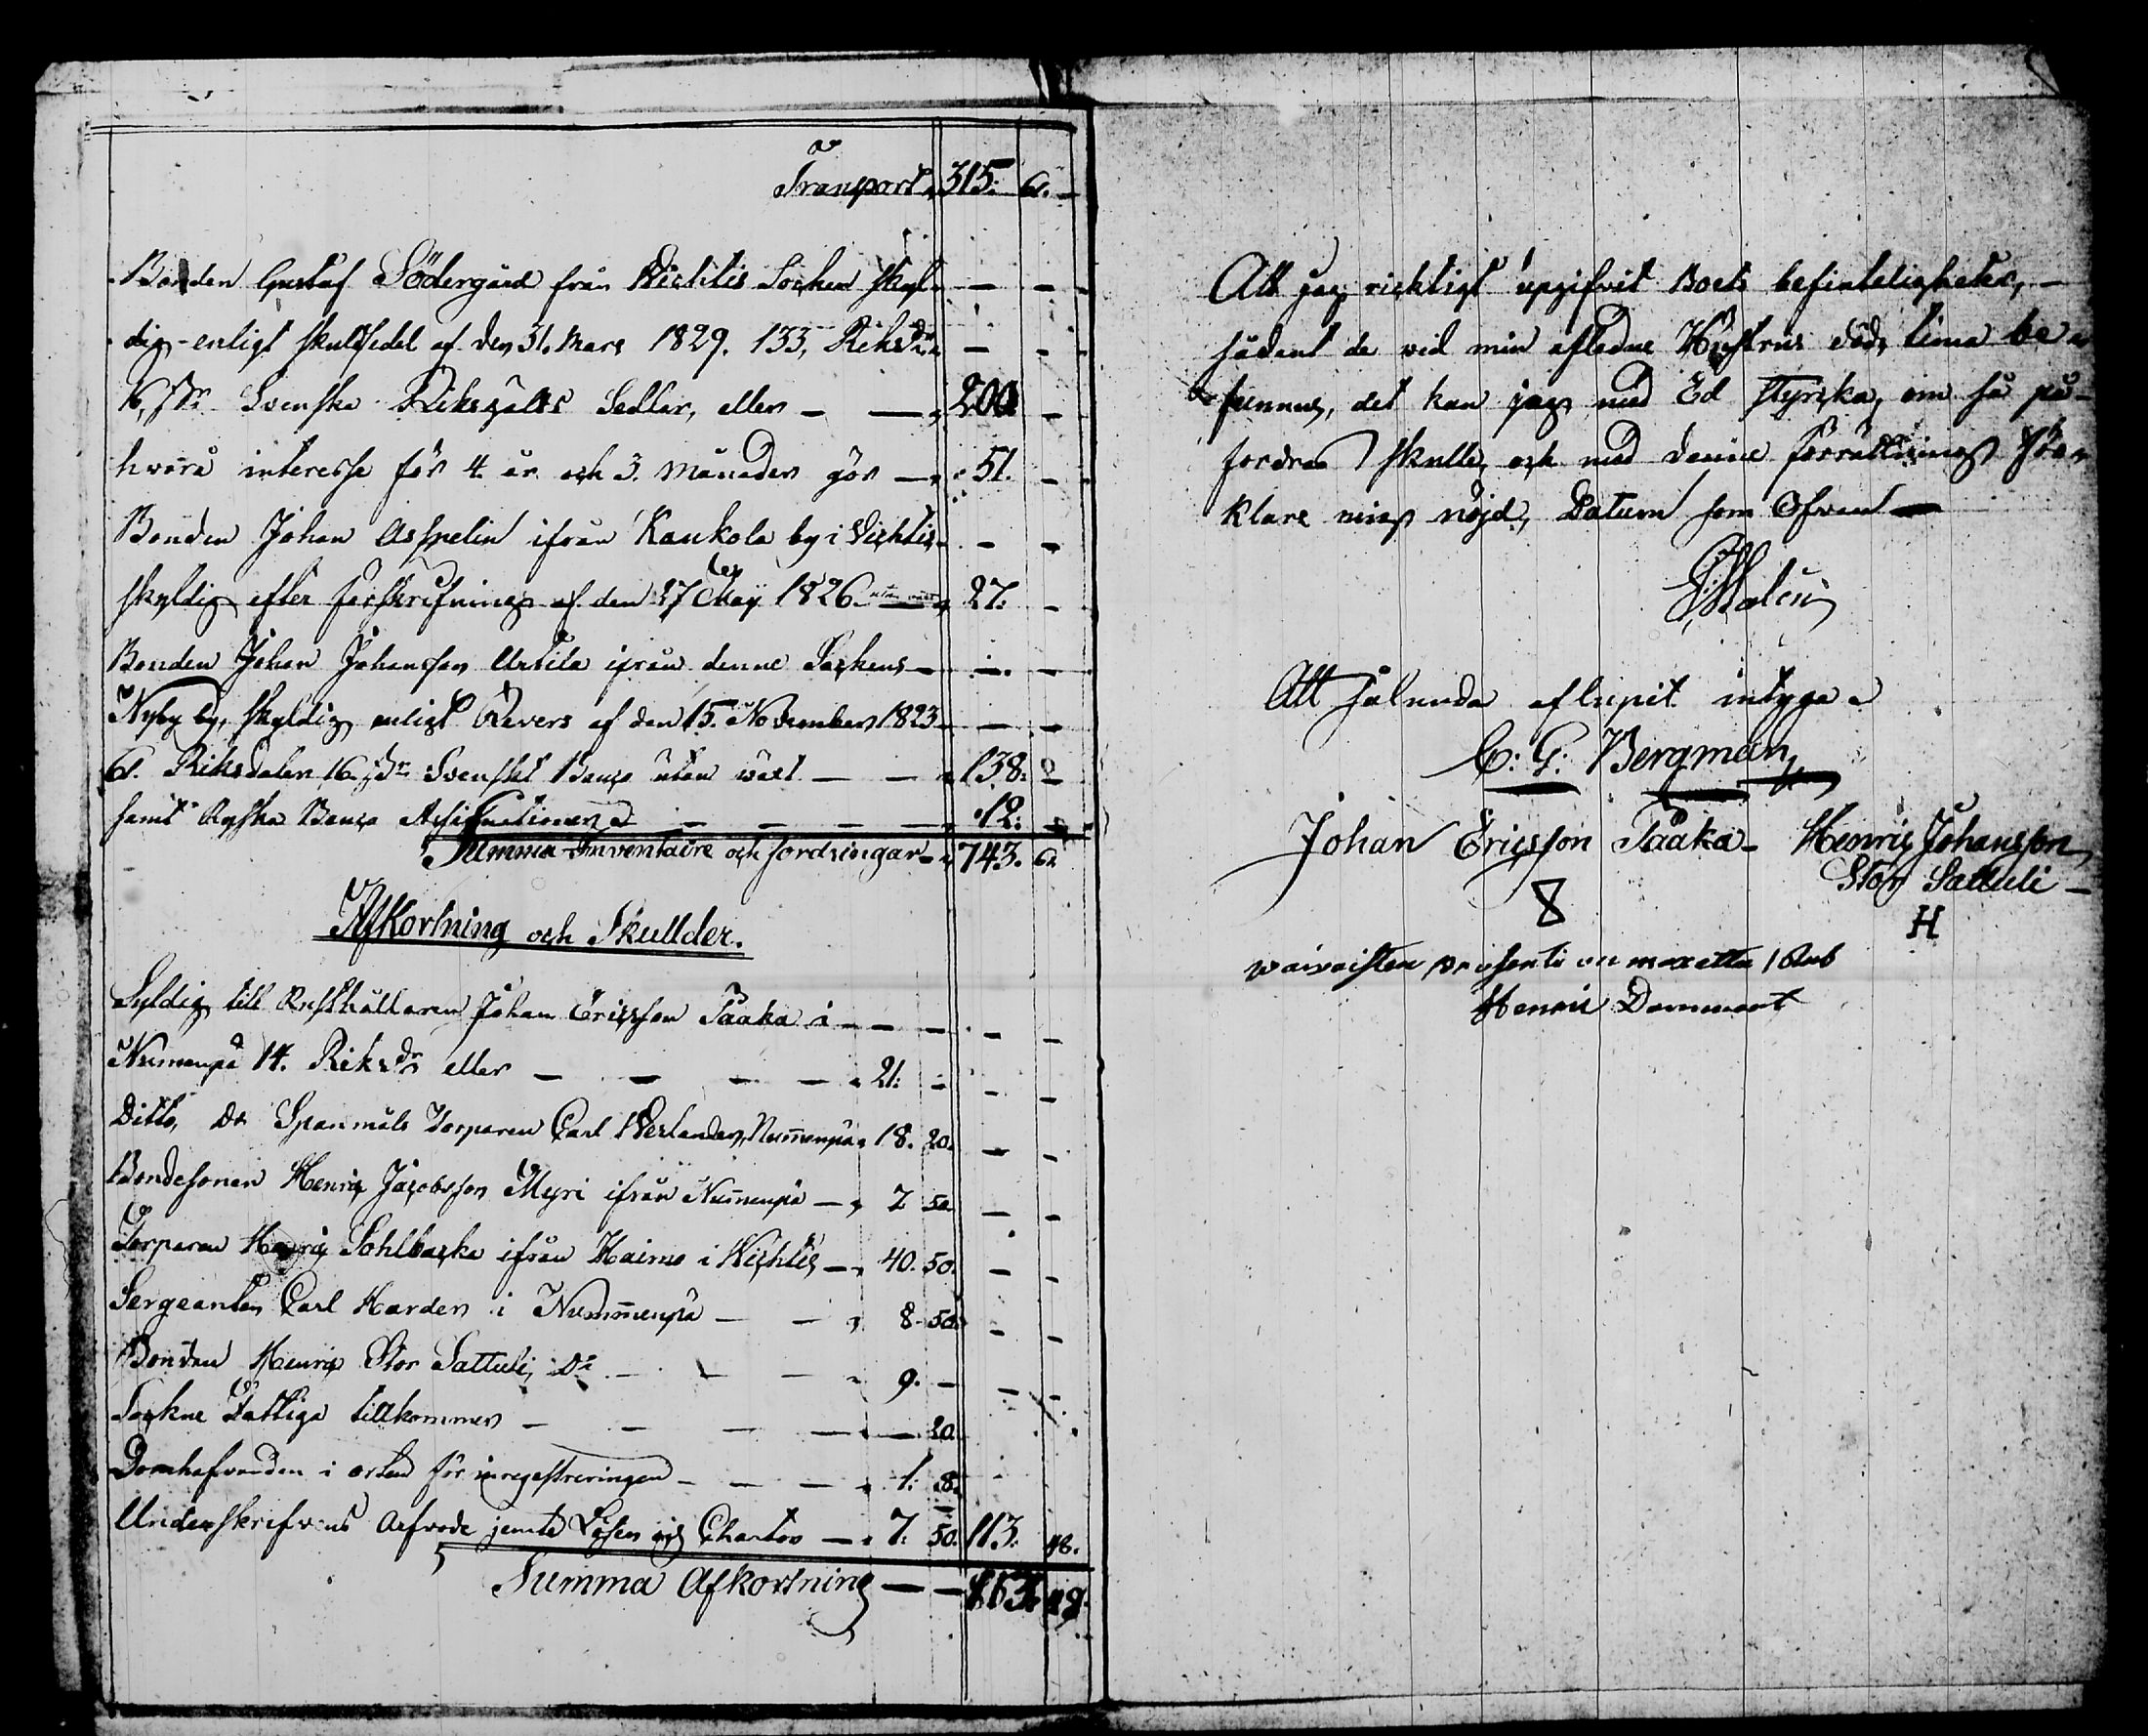 Transport „ 315. 6. —
Bonden Gustaf Södergård från Wichtis Sochen skyl- — —
dig enligt skuldsedel af den 31. Mars 1829. 133, Riksdr — —
16, sk. Svenska Riksgälds Sedlar, eller — — „ 200 —
hvarå interesse för 4. år och 3. Månader gör — „ 51. —
Bonden Johan Asspelin ifrån Kaukola by i Wichtis — —
skyldig efter förskrifning af den 27 May 1826 — „ 27: —
Bonden Johan Johansson Uotila ifrån denne Sockens — — —
Nyby by, skyldig enligt Revers af den 15. November 1823 — —
6. Riksdaler 16. sk. Svenskt Banco utom växt — — „ 138: —
samt Ryska Banco Assignationer — — — — „ 12: —
Summa Inventarie och fordringar „ 743. 6.
Afkortning och Skullder.
Syldig till Rusthållaren Johan Ericsson Paaka i — — — — —
Nummenpä 14. Riksdr eller — — — — „ 21: — — —
Ditto, Do Spanmåls Torparen Carl Werlander, Nummenpä „ 18. 20. — —
Bondesonen Henric Jacobsson Myri ifrån Nummenpä — „ 7 50. — —
Torparen Henric Sohlbacka ifrån Haimo i Wichtis — „ 40. 50. — —
Sergeanten Carl Harden i Nummenpä — — „ 8. 50. — —
Bonden Henric Stor Sattuli, Do — — — „ 9. — — —
Sockne Fattiga tillkommer — — — — „ — 20.
Domhafvanden i orten för inregistreringen — — — „ 1: 8.
Underskrifvens Arfvode jemte Lösen och Charta — „ 7: 50. 113. 48.
Summa Afkortning — — 113. 48.
Att jag richtigt upgifvit Boets befinteligheter, —
sådant de vid min afledne Hustrus död, tima be-
funnus, det kan jag med Ed styrcka, om så på-
fordras skulle, och med denne förrättning för-
klare mig nöjd, Datum som Ofvan —
Att sålunda aflupit intyga
C: G: Bergman,
Johan Ericsson Paaka — Henric Johansson
Stor Sattuli —
8 H
waivaisten
Henric Dammert